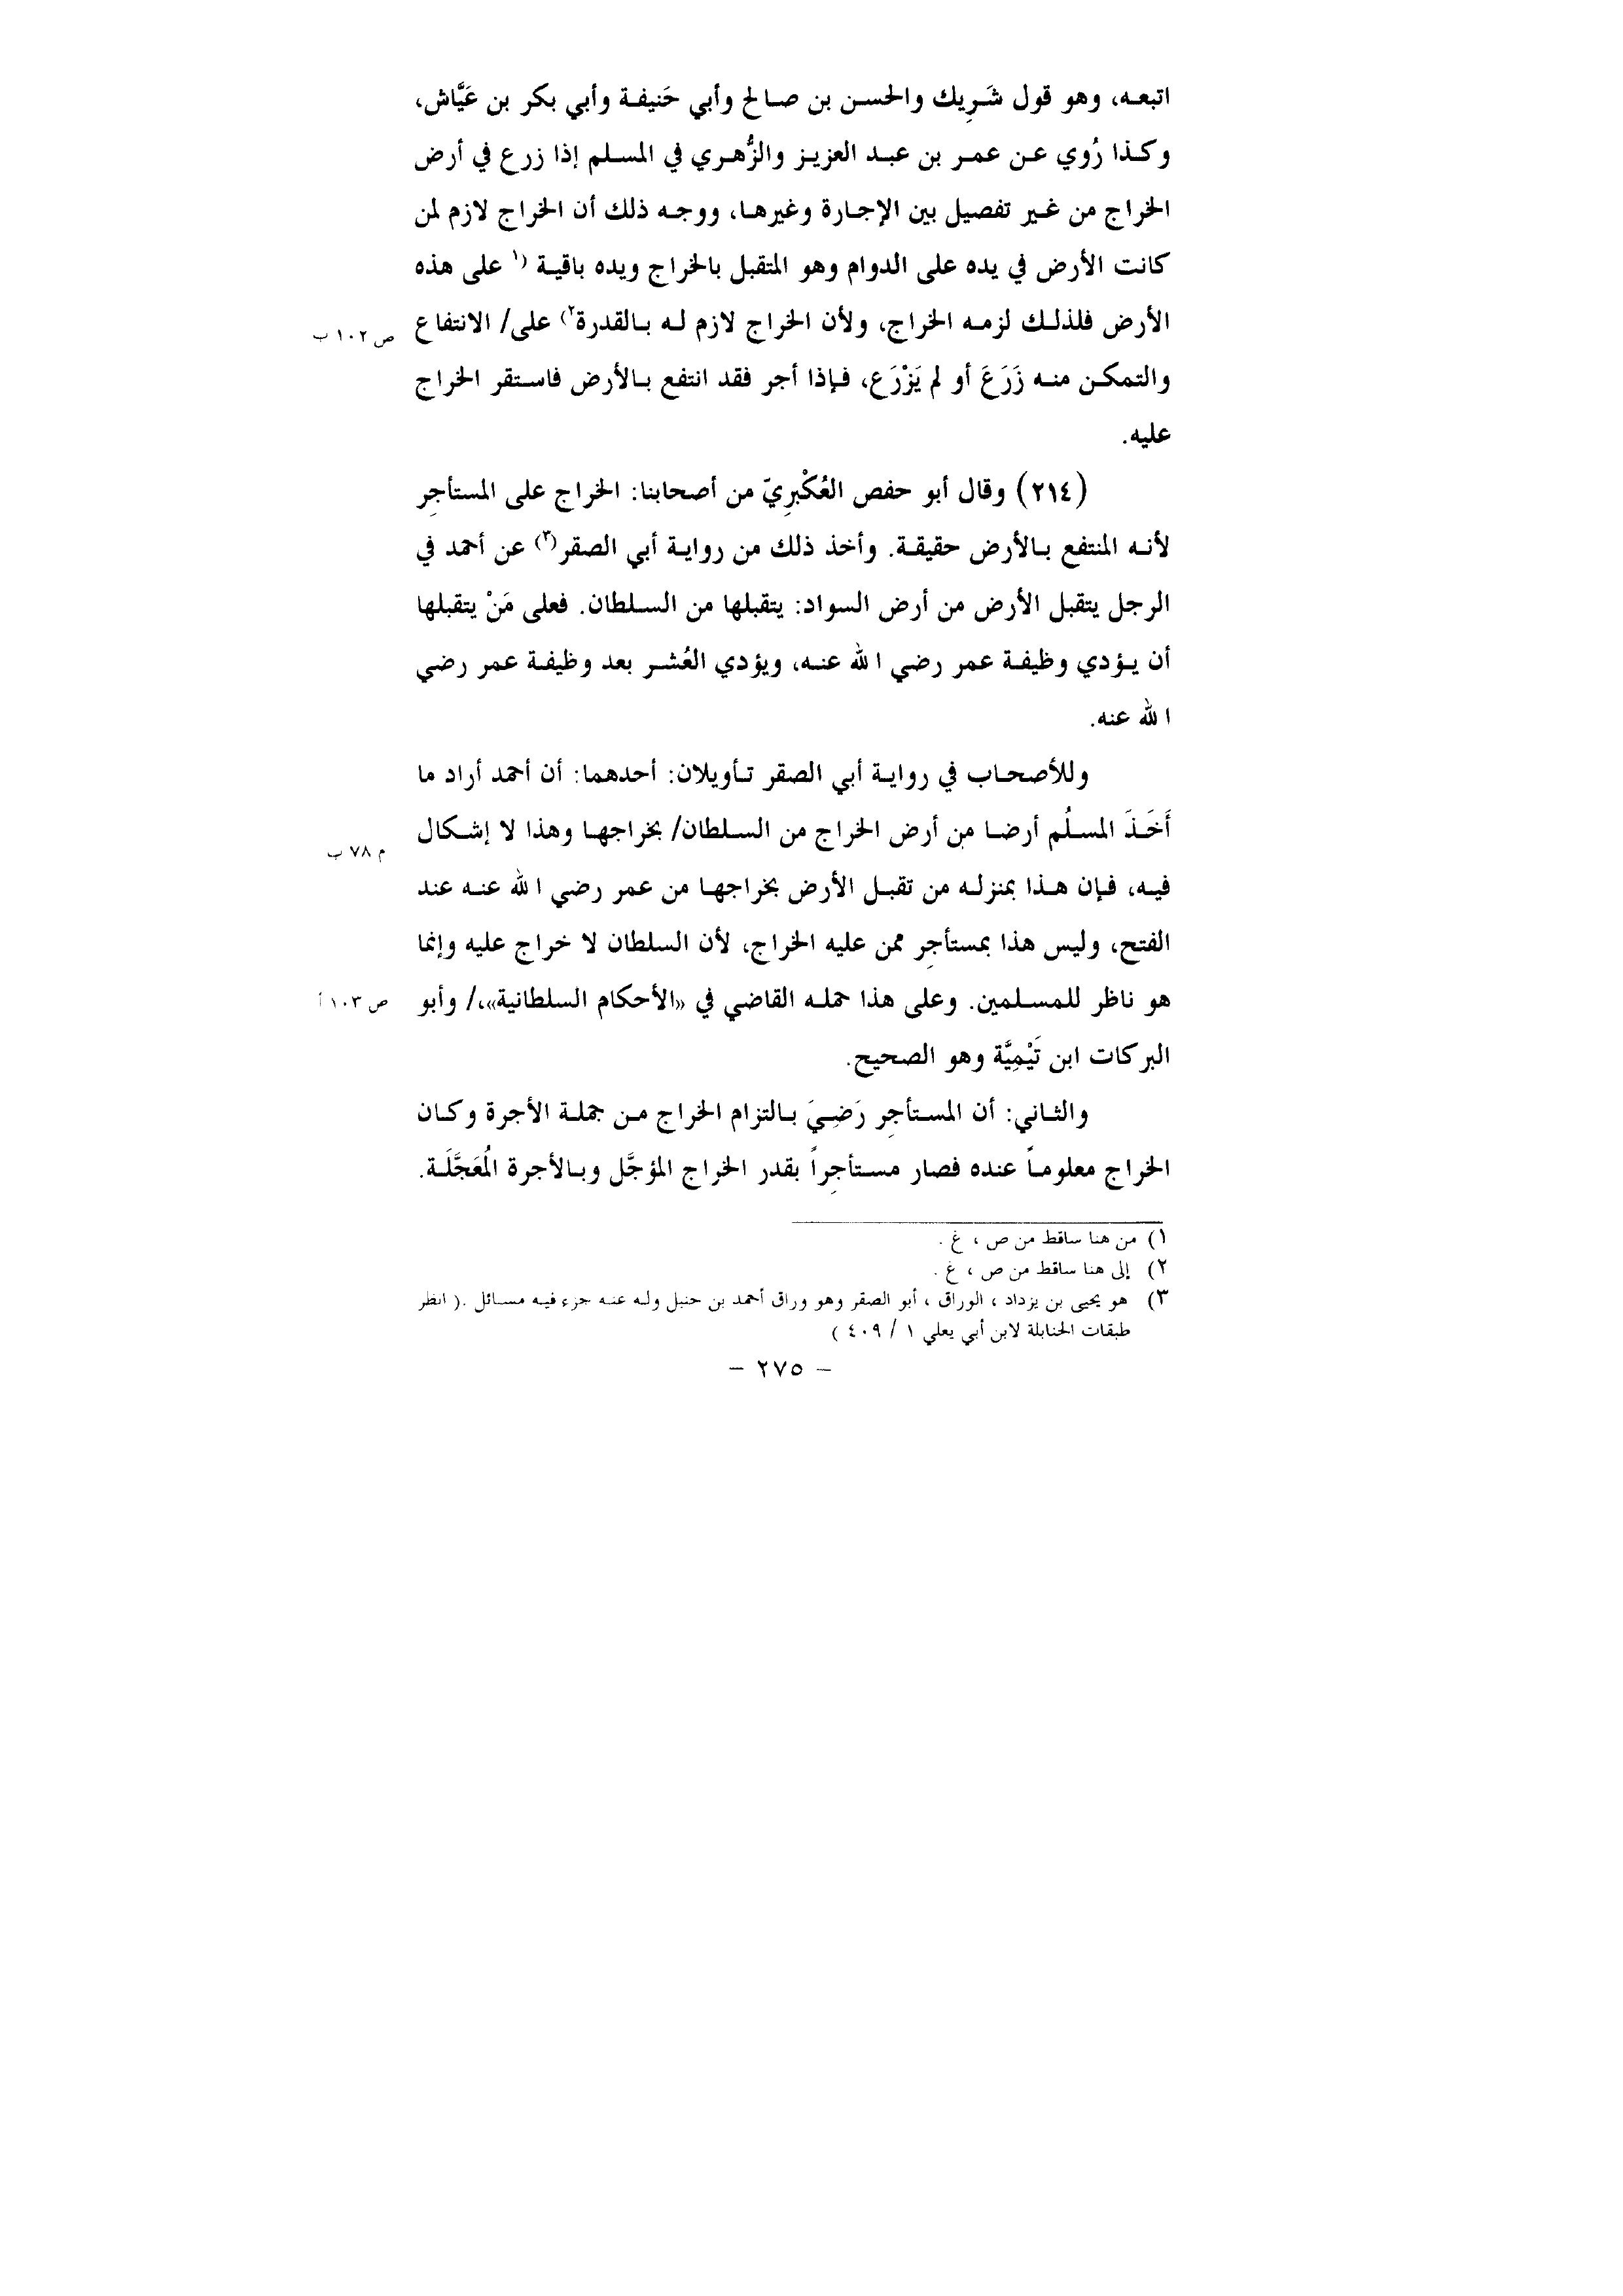 اتبعه، وهو قول شَرِيك والحسن بن صالح وأبي حَنيفة وأبي بكر بن عَيَّاش،
وكذا رُوي عن عمر بن عبد العزيز والزُّهري في المسلم إذا زرع في أرض
الخراج من غير تفصيل بين الإجارة وغيرها، ووجه ذلك أن الخراج لازم لمن
كانت الأرض في يده على الدوام وهو المتقبل بالخراج ويده باقية (١ على هذه
الأرض فلذلك لزمه الخراج، ولأن الخراج لازم له بالقدرة٢) على/ الانتفاع
ص ١٠٢ ب
والتمكن منه زَرَعَ أو لم يَزْرَع، فإذا أجر فقد انتفع بالأرض فاستقر الخراج
عليه.
(٢١٤) وقال أبو حفص العُكْبرِيّ من أصحابنا: الخراج على المستأجِر
لأنه المنتفع بالأرض حقيقة. وأخذ ذلك من رواية أبي الصقر(٣) عن أحمد في
الرجل يتقبل الأرض من أرض السواد: يتقبلها من السلطان. فعلى مَنْ يتقبلها
أن يؤدي وظيفة عمر رضي الله عنه، ويؤدي العُشر بعد وظيفة عمر رضي
الله عنه.
وللأصحاب في رواية أبي الصقر تأويلان: أحدهما: أن أحمد أراد ما
أَخَذَ المسلُم أرضا مِن أرض الخراج من السلطان/ بخراجها وهذا لا إشكال
م ٧٨ ب
فيه، فإن هذا بمنزله من تقبل الأرض بخراجها من عمر رضي الله عنه عند
الفتح، وليس هذا بمستأجِر ممن عليه الخراج، لأن السلطان لا خراج عليه وإنما
هو ناظر للمسلمين. وعلى هذا حمله القاضي في «الأحكام السلطانية»،/ وأبو
ص ١٠٣ أ
البركات ابن تَيْمِيَّة وهو الصحيح.
والثاني: أن المستأجِر رَضِيَ بالتزام الخراج من جملة الأجرة وكان
الخراج معلوماً عنده فصار مستأجِراً بقدر الخراج المؤجَّل وبالأجرة المُعَجَّلَة.
١) من هنا ساقط من ص ، غ .
٢) إلى هنا ساقط من ص ، غ .
٣) هو يحيى بن يزداد ، الوراق ، أبو الصقر وهو وراق أحمد بن حنبل وله عنه جزء فيه مسائل .( انظر
طبقات الحنابلة لابن أبي يعلي ١ / ٤٠٩ )
– ٢٧٥ –